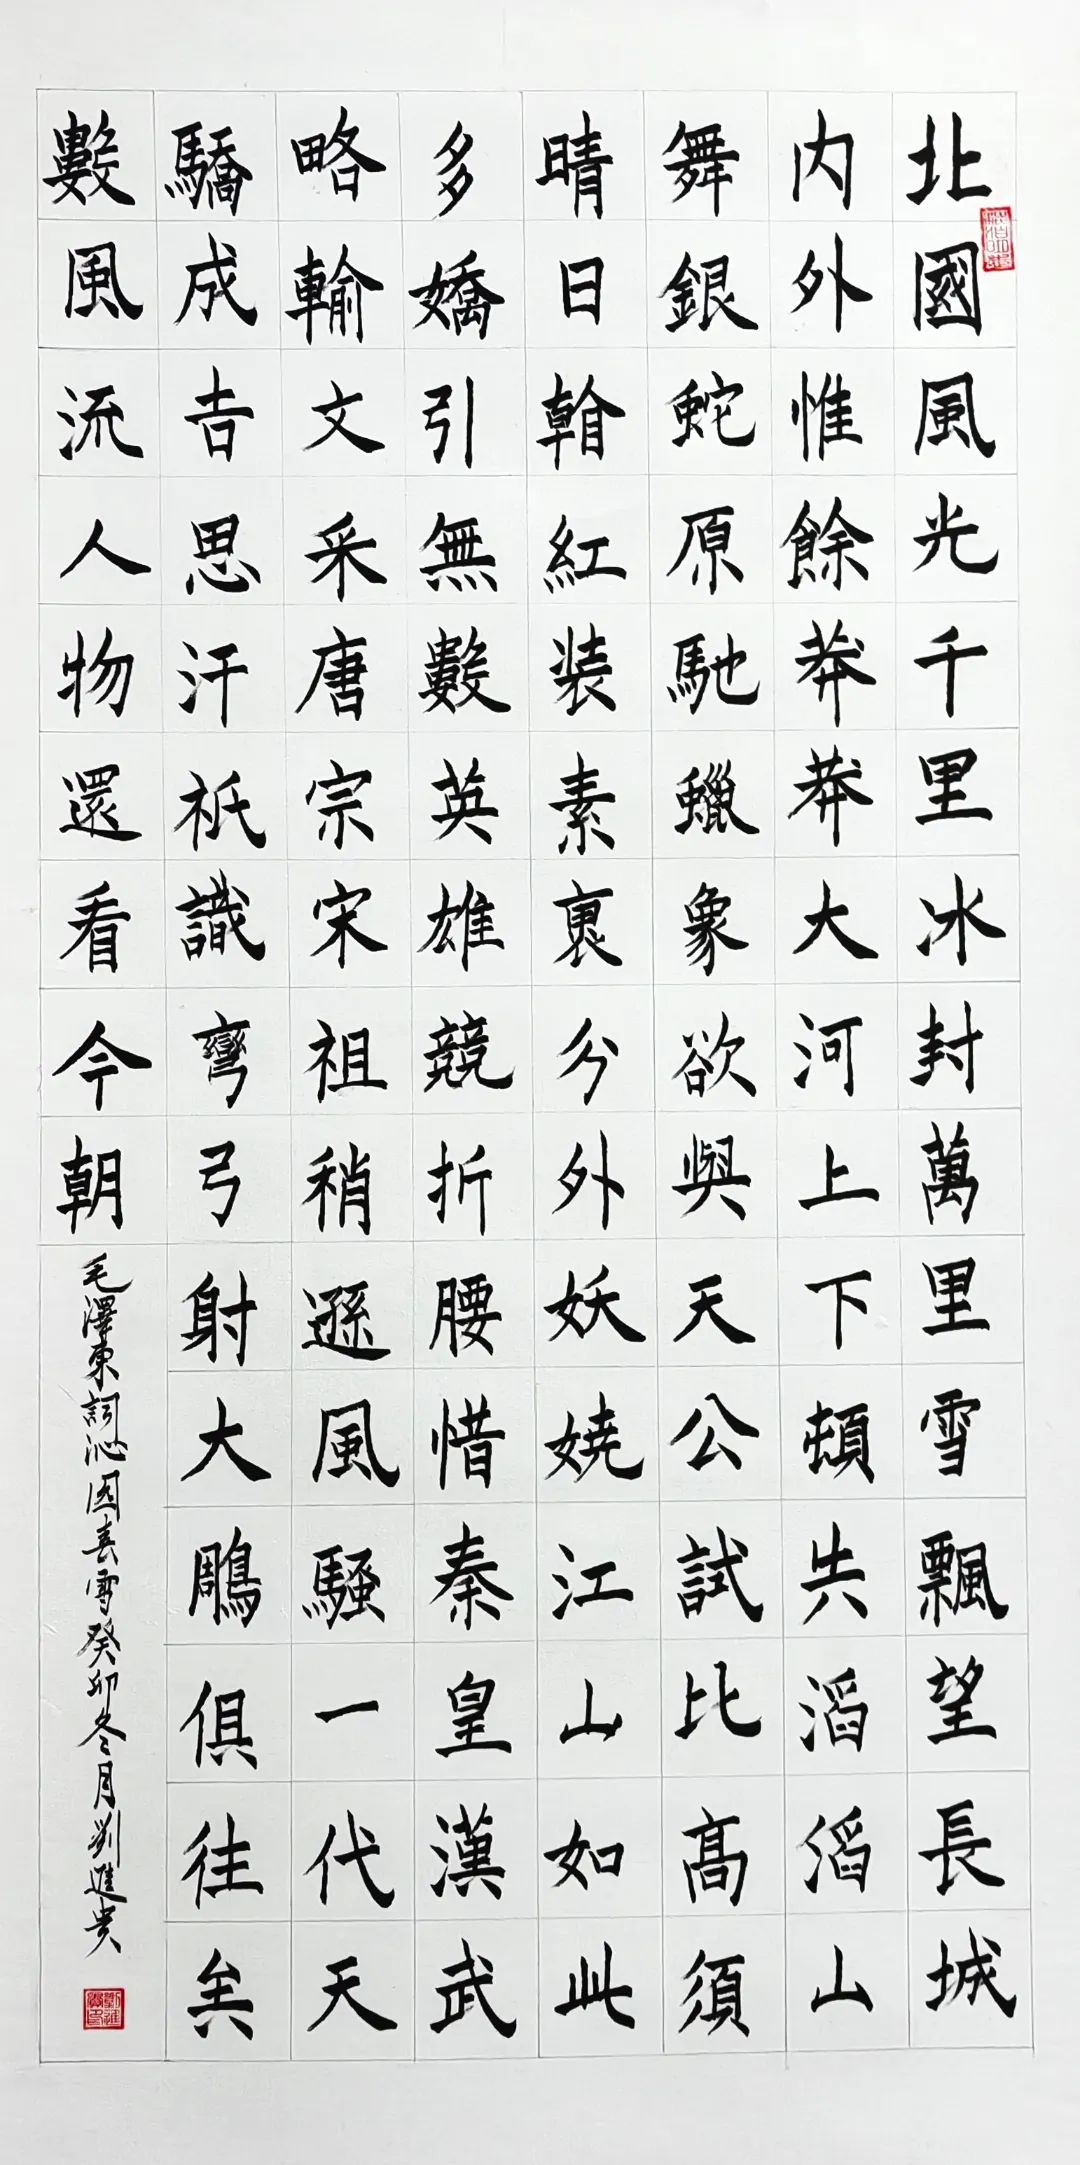 北國風光千里冰封萬里雪飄望長城
内外惟餘莽莽大河上下頓失滔滔山
舞銀蛇原馳蠟象欲與天公試比高須
晴日看紅装素裹分外妖嬈江山如此
多嬌引無數英雄競折腰惜秦皇漢武
略輸文采唐宗宋祖稍遜風騷一代天
驕成吉思汗祇識彎弓射大鵰俱往矣
數風流人物還看今朝
毛澤東詞沁园春雪癸卯冬月劉進貴